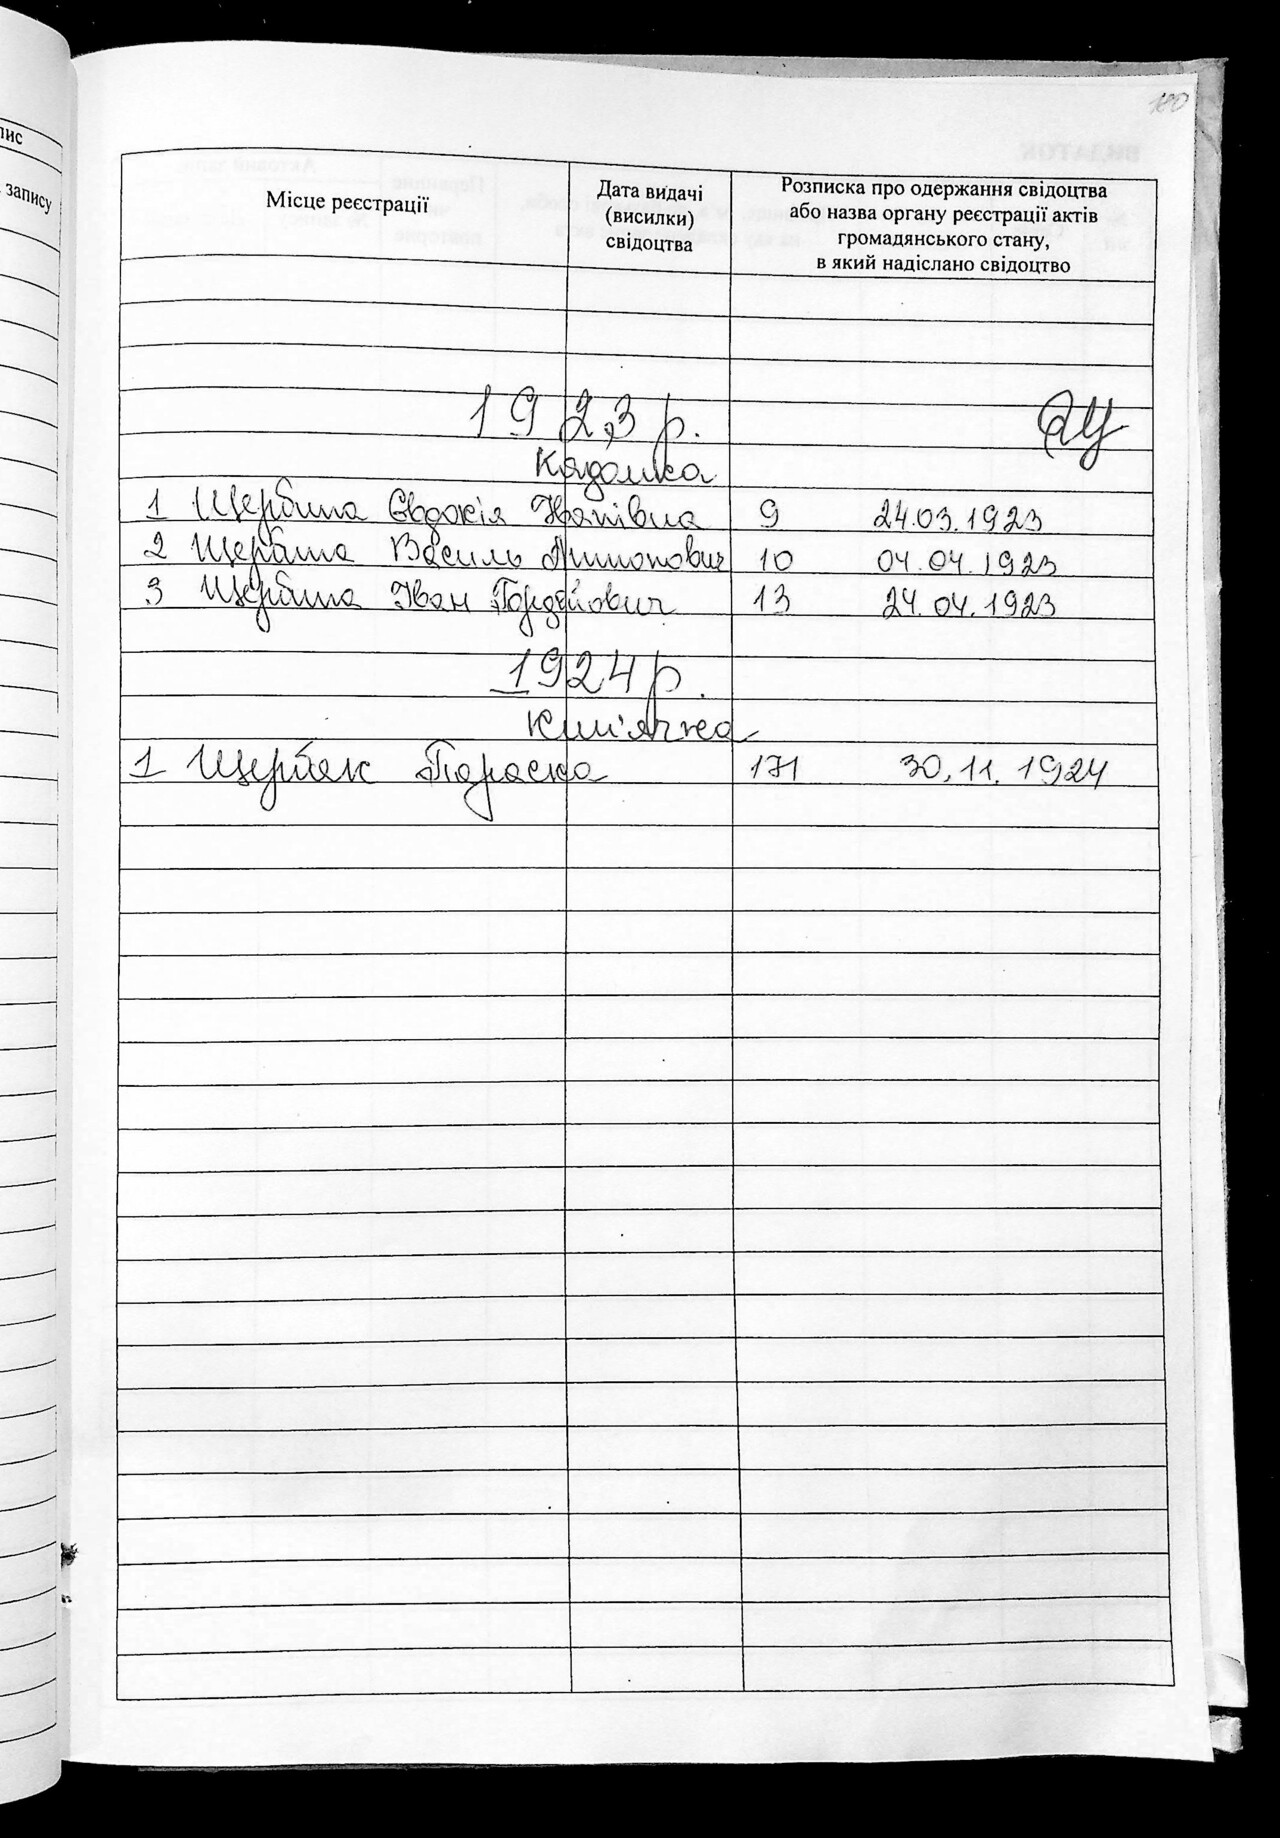 180
пис
запису
Місце реєстрації
Дата видачі
(висилки)
свідоцтва
Розписка про одержання свідоцтва
або назва органу реєстрації актів
громадянського стану,
в який надіслано свідоцтво
1923 р.
Кадомка
1 Щербина Євдокія Іванівна 9 24.03.1923
2 Щербина Василь 10 04.04.1923
3 Щербина Іван Гордійович 13 24.04.1923
1924 р.
Кип'ячка
1 Щербяк Параска 171 30.11.1924